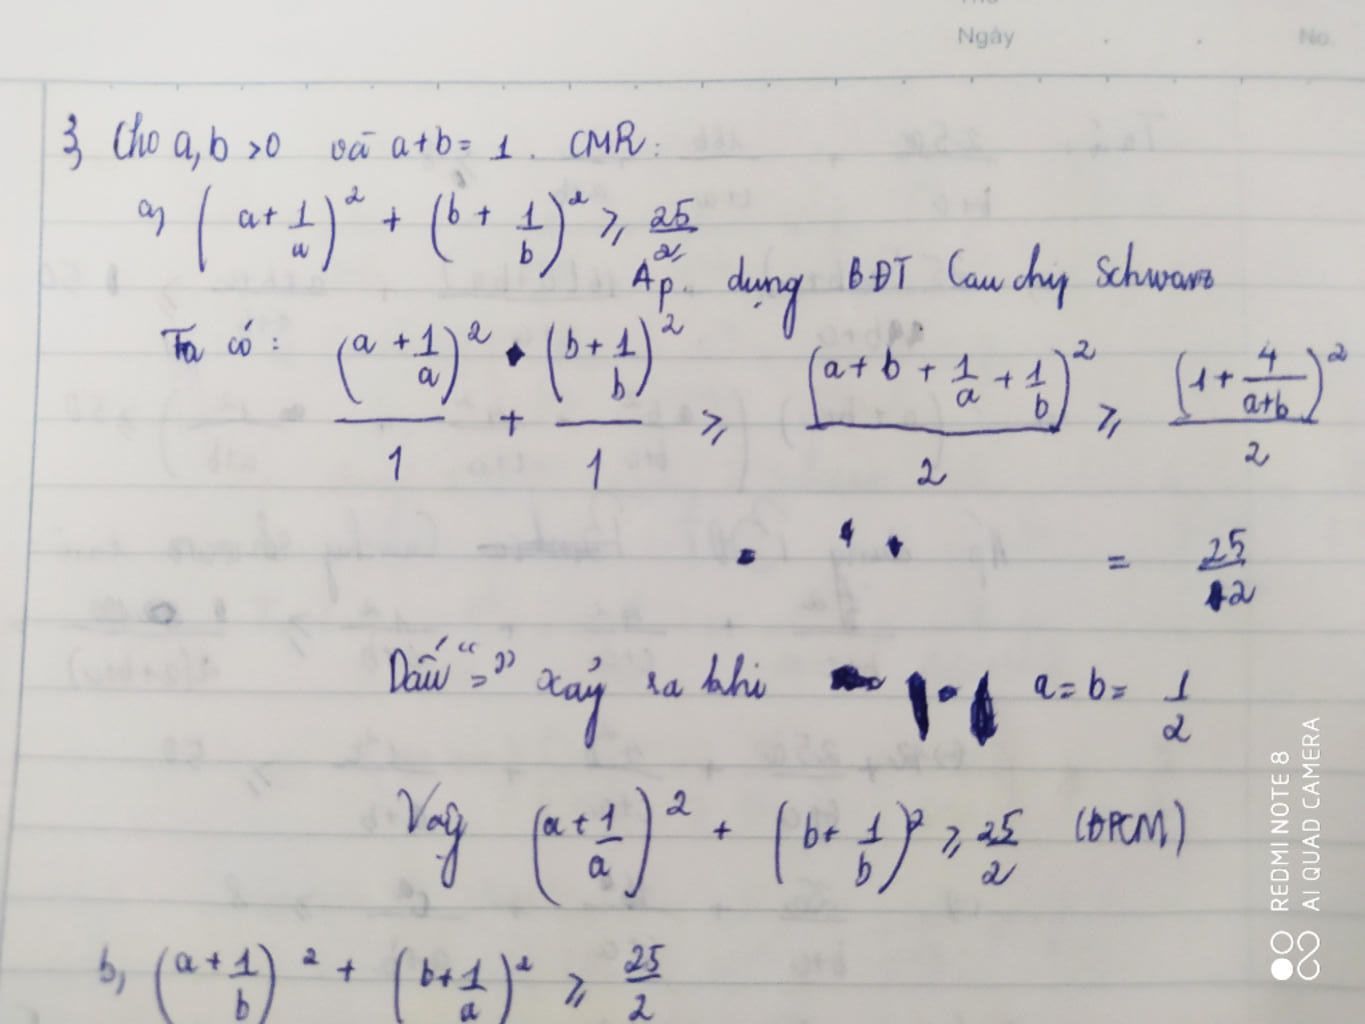 Ngày No.
3, Cho a, b > 0 và a+b = 1. CMR:
a, (a + 1/a)² + (b + 1/b)² ≥ 25/2
Áp dụng BĐT Cauchy Schwarz
Ta có: (a + 1/a)²/1 + (b + 1/b)²/1 ≥ (a + b + 1/a + 1/b)²/2 ≥ (1 + 4/(a+b))²/2
= 25/2
Dấu "=" xảy ra khi a = b = 1/2
Vậy (a + 1/a)² + (b + 1/b)² ≥ 25/2 (ĐPCM)
b, (a + 1/b)² + (b + 1/a)² ≥ 25/2
REDMI NOTE 8
AI QUAD CAMERA